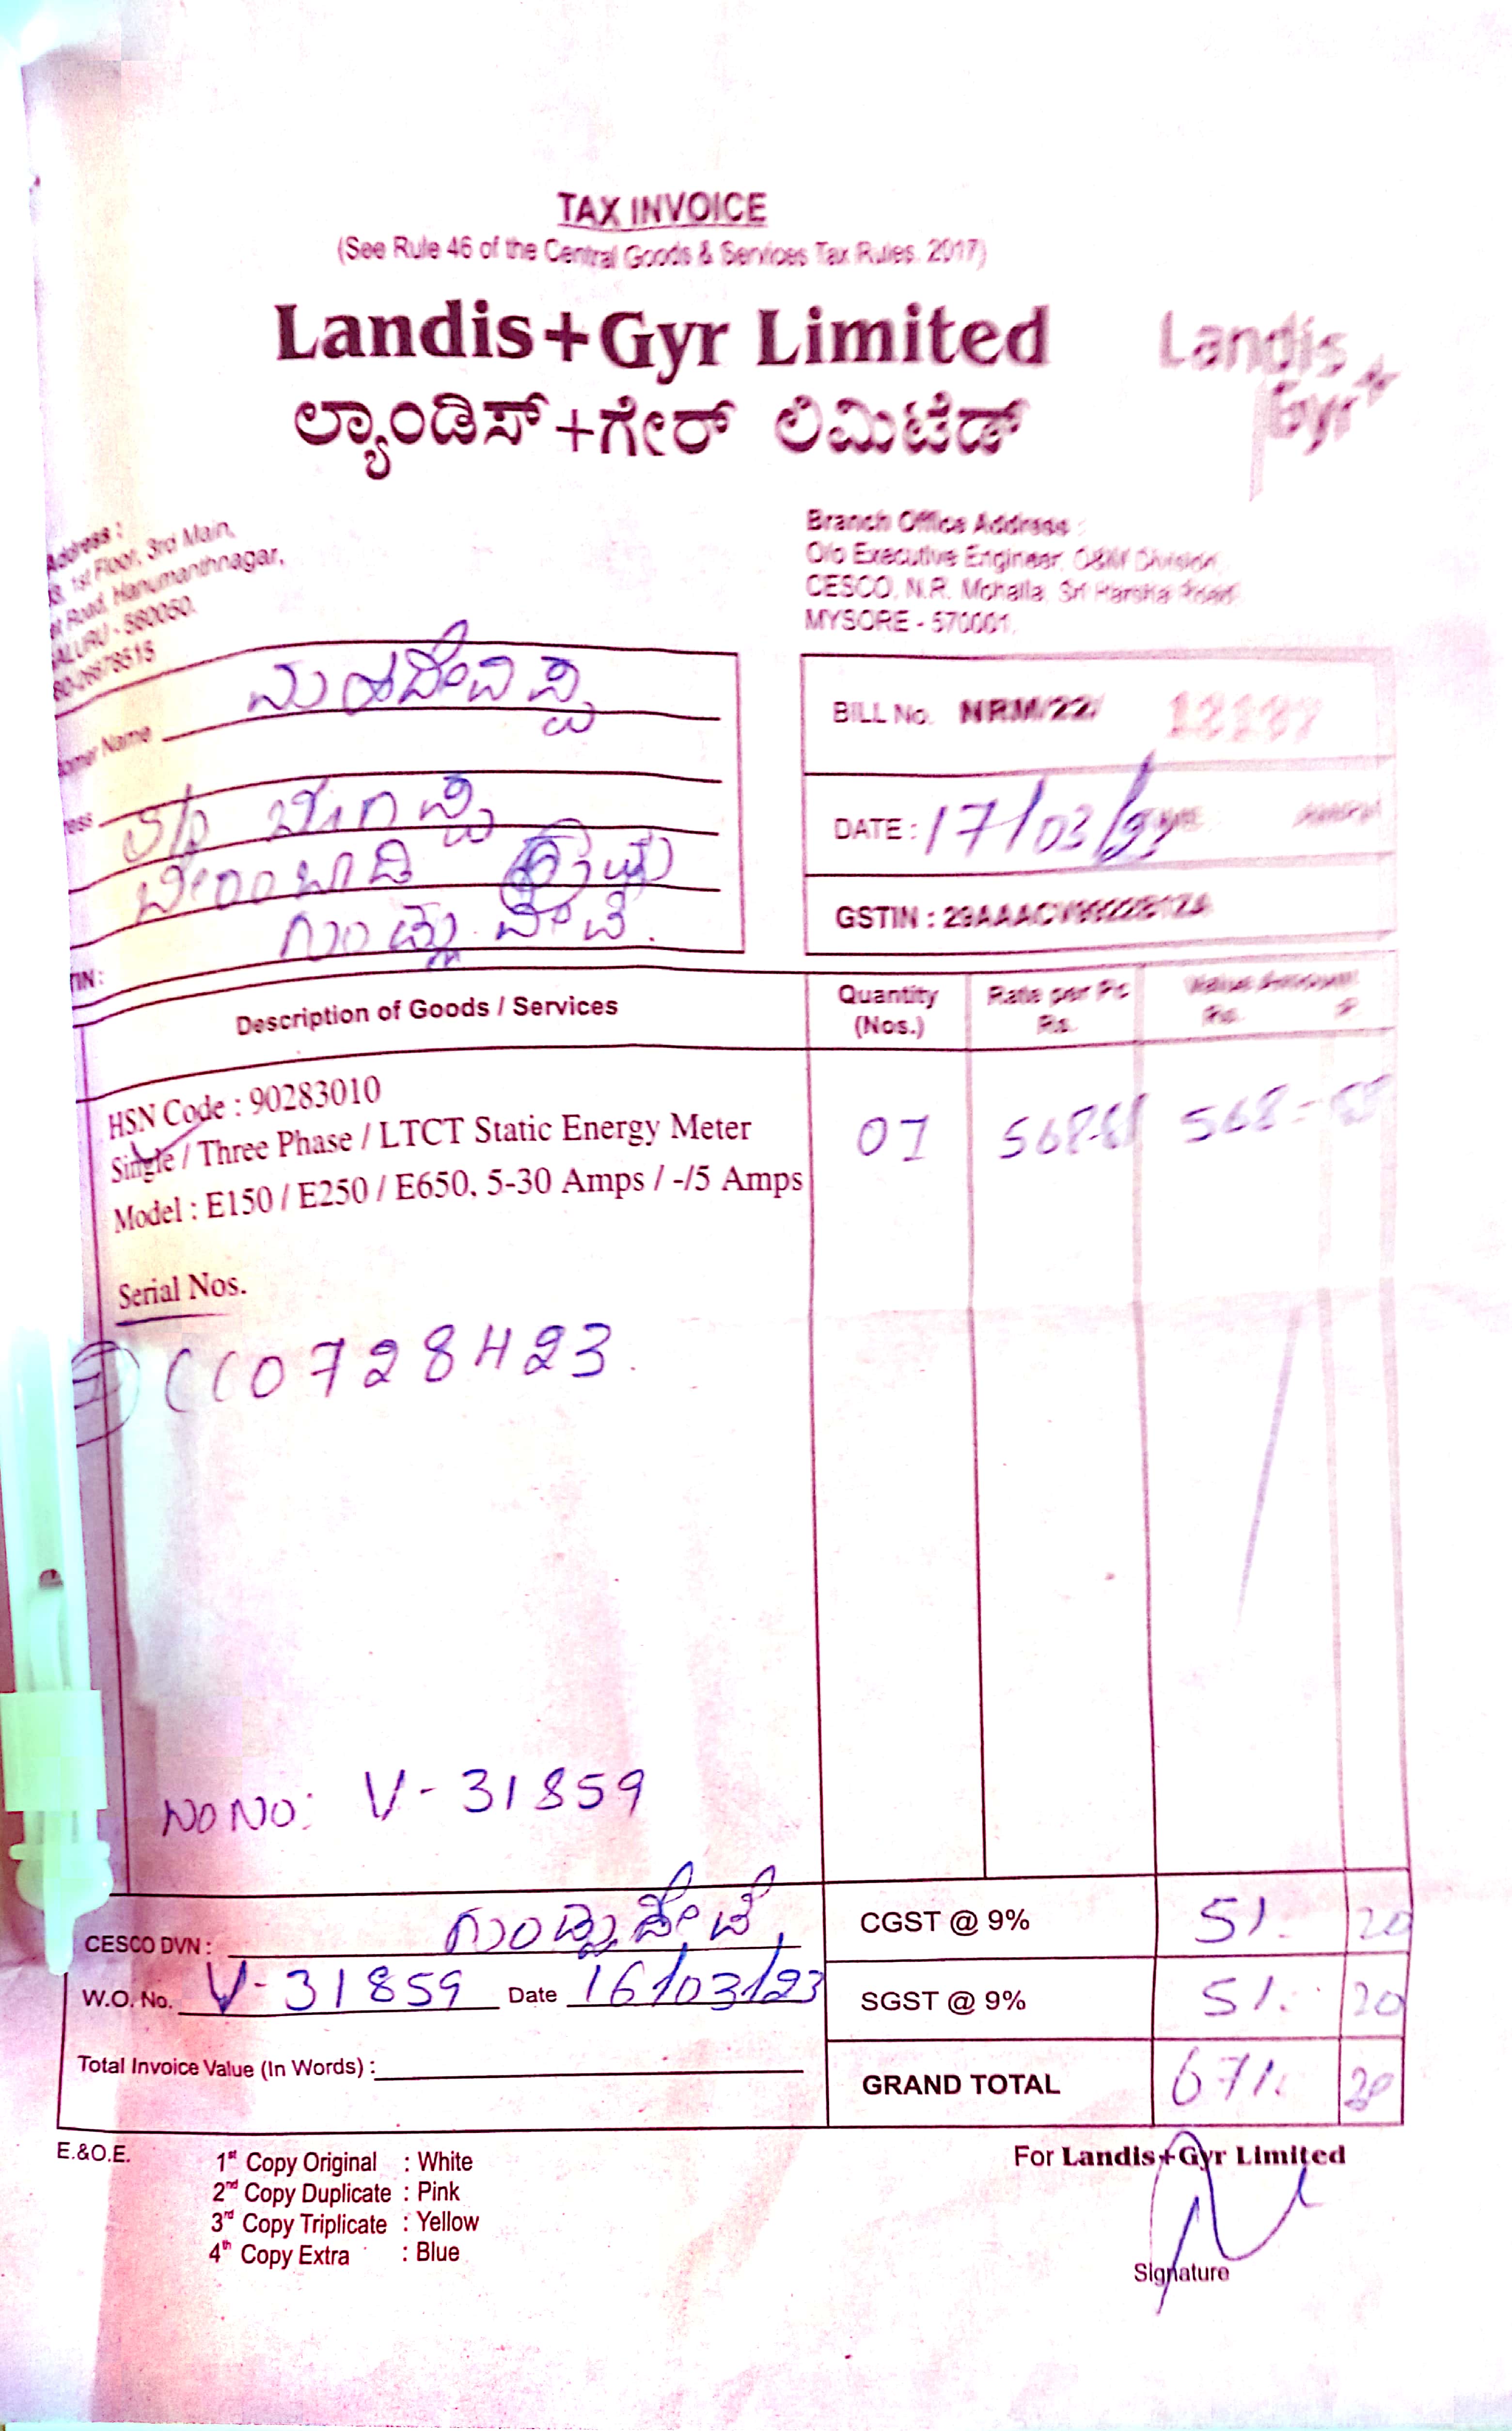 TAX INVOICE
(See Rule 46 of the Central Goods & Services Tax Rules. 2017)
Landis+Gyr Limited
Landis
Gyr
ಲ್ಯಾಂಡಿಸ್+ಗೇರ್ ಲಿಮಿಟೆಡ್
Address :
1st Floor, 3rd Main,
Road, Hanumanthnagar,
ALURU - 560050.
Branch Office Address :
O/o Executive Engineer, O&M Division,
CESCO, N.R. Mohalla, Sri Harsha Road,
MYSORE - 570001.
omer Name
ess
ಗುಂಡ್ಲುಪೇಟೆ.
TIN :
BILL No. NRM/22/
DATE : 17/03/
GSTIN :
Description of Goods / Services
Quantity (Nos.)
Rate per Pc Rs.
Value Amount Rs. P.
HSN Code : 90283010
Single / Three Phase / LTCT Static Energy Meter
01
Model : E150 / E250 / E650, 5-30 Amps / -/5 Amps
Serial Nos.
CC0728423.
NO: V-31859
CESCO DVN : ಗುಂಡ್ಲುಪೇಟೆ,
CGST @ 9% 51. 20
W.O. No. V-31859 Date 16/03/23
SGST @ 9% 51. 20
Total Invoice Value (In Words) :
GRAND TOTAL 671. 20
E.&O.E.
For Landis+Gyr Limited
1st Copy Original : White
2nd Copy Duplicate : Pink
3rd Copy Triplicate : Yellow
4th Copy Extra : Blue
Signature